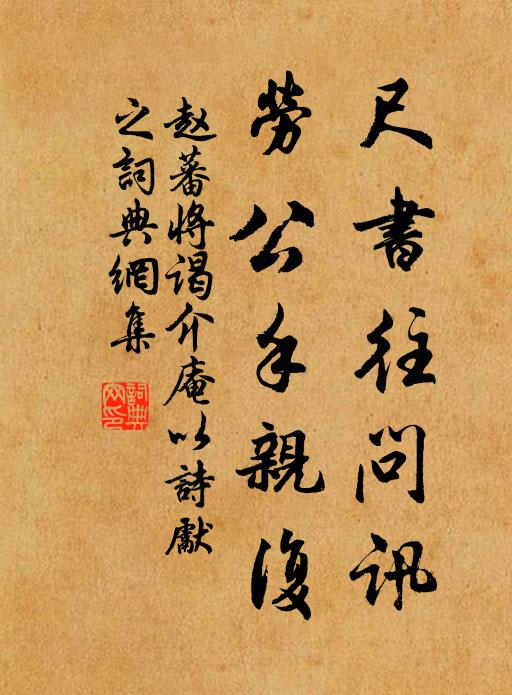 尺書往問訊
勞公手親復
赵蕃將谒介庵以詩獻
之詞典網集
詞典网印